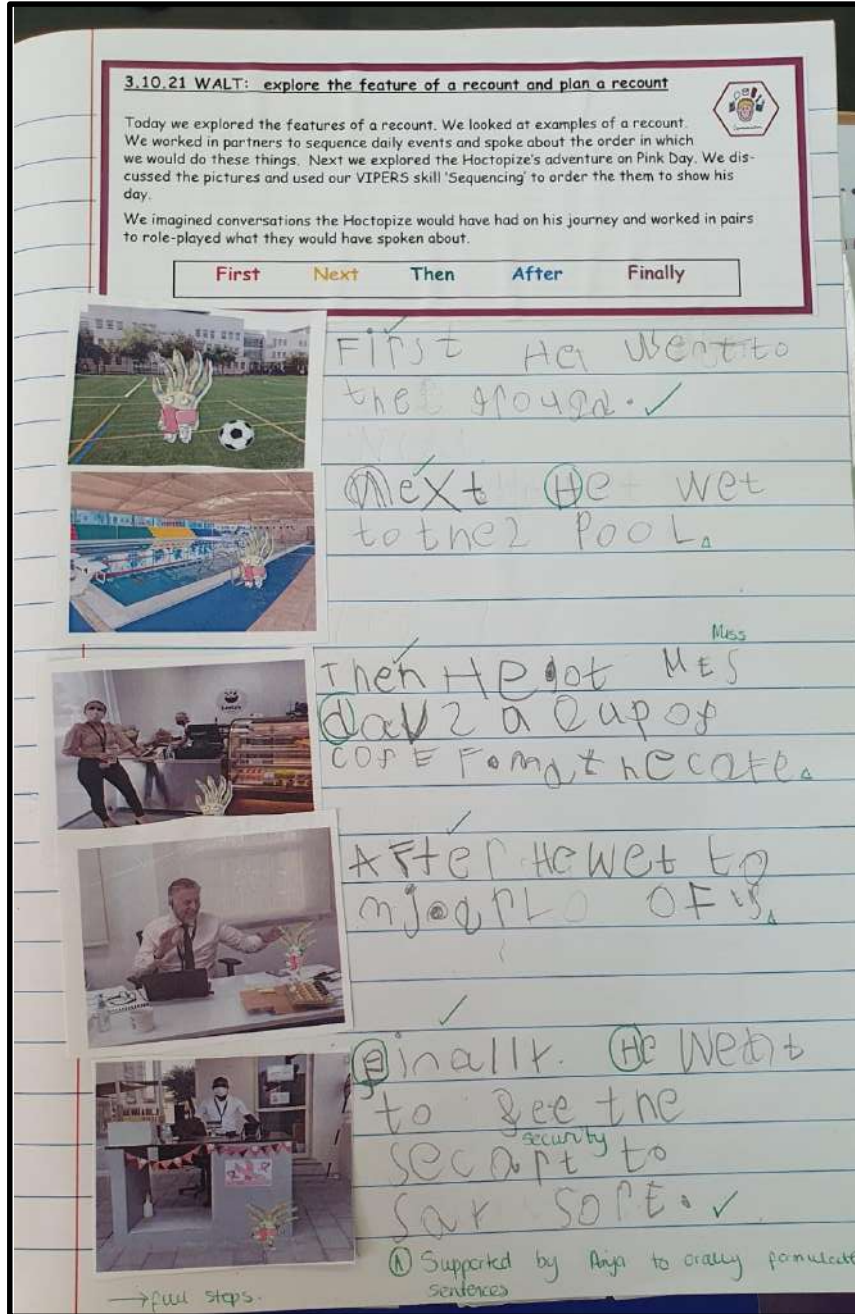 3.10.21 WALT: explore the feature of a recount and plan a recount
Today we explored the features of a recount. We looked at examples of a recount.
We worked in partners to sequence daily events and spoke about the order in which
we would do these things. Next we explored the Hoctopize's adventure on Pink Day. We dis-
cussed the pictures and used our VIPERS skill 'Sequencing' to order the them to show his
day.
We imagined conversations the Hoctopize would have had on his journey and worked in pairs
to role-played what they would have spoken about.
First Next Then After Finally
First He Went to
the ground.
Next He wet
to the POOL
Miss
Then He got MES
a cup of
COFE the cafe
AFter He Wet to
OFis
Finally. He Went
to see the
security
to
SOrE.
Supported by Anja to orally formulate
sentences
→ full stops.